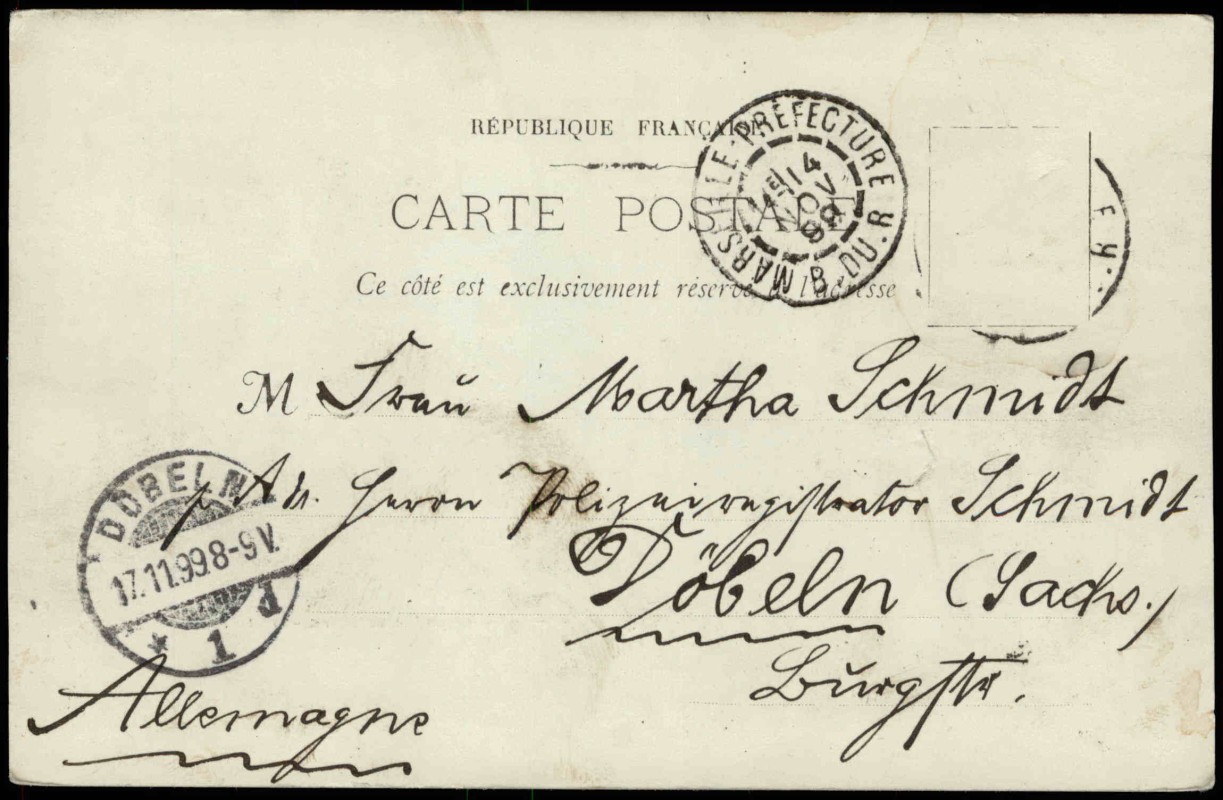 RÉPUBLIQUE FRANÇAISE
CARTE POSTALE
Ce côté est exclusivement réservé à l'adresse
MARSEILLE-PRÉFECTURE
B. DU. R
4E 14
NOV
99
M Frau Martha Schmidt
p. Adr. Herrn Polizeiregistrator Schmidt
Döbeln (Sachs.)
Burgstr.
Allemagne
DÖBELN
17.11.99.8-9V.
* 1 d